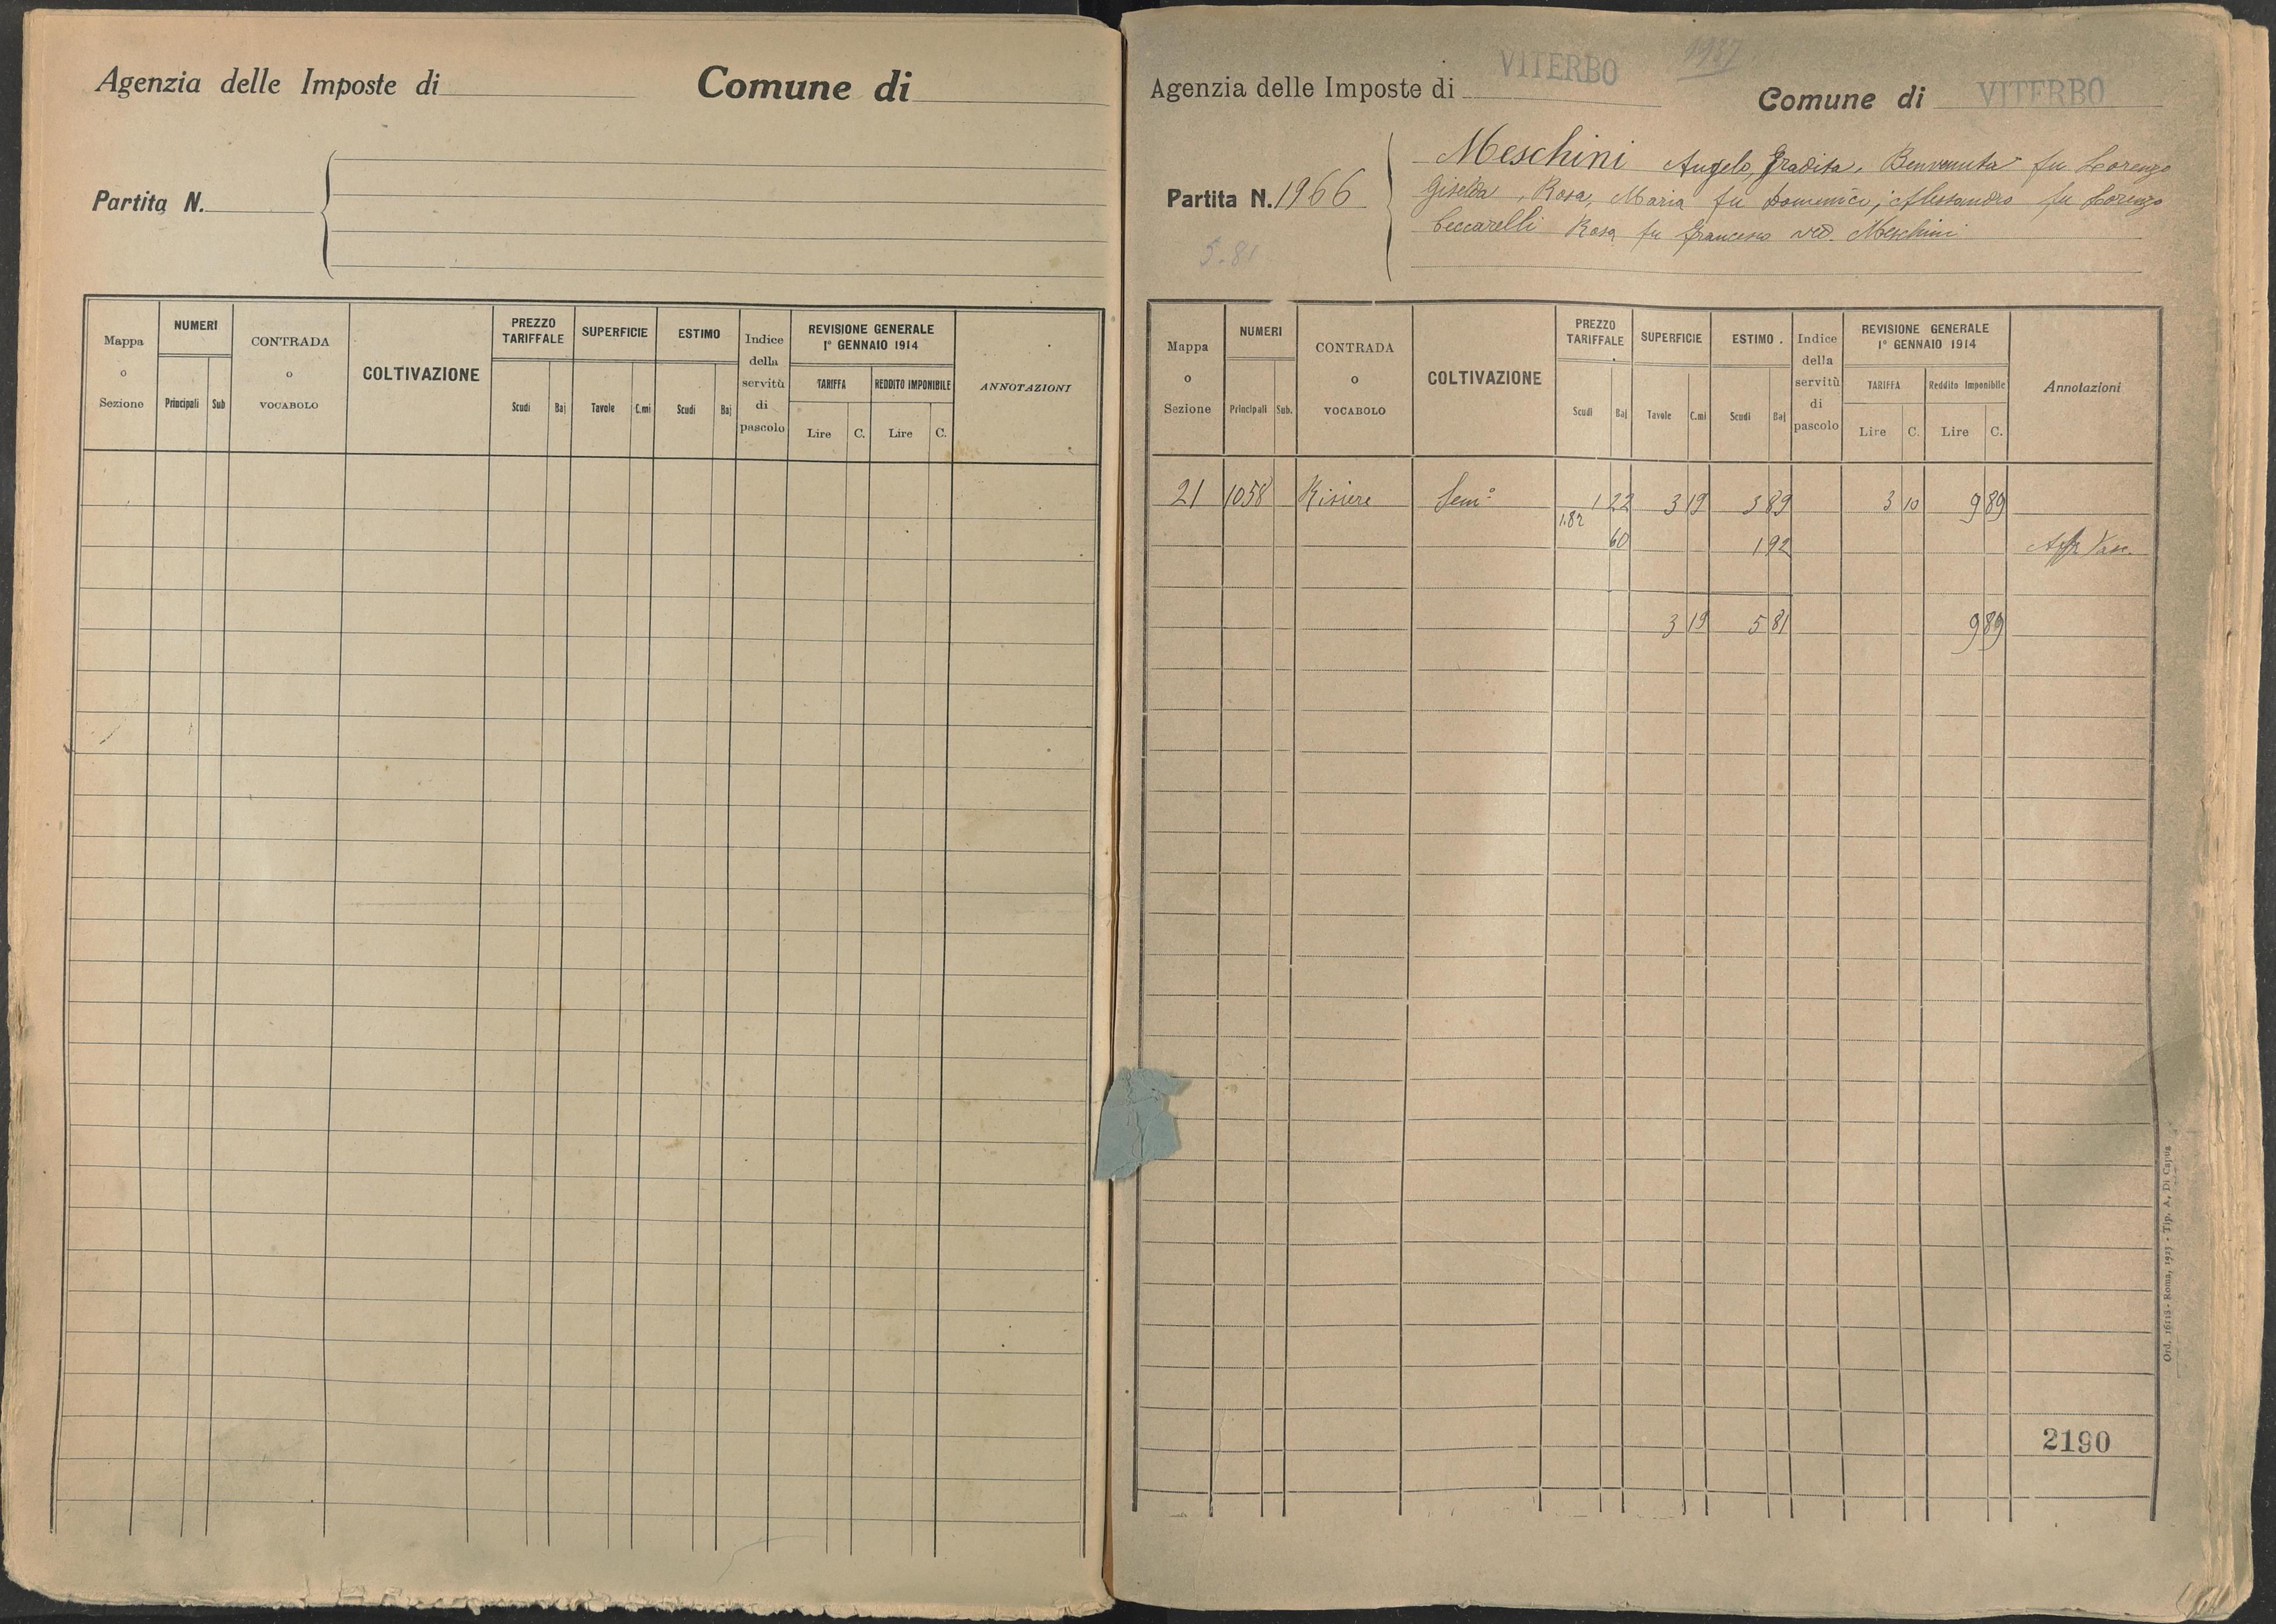 Agenzia delle Imposte di Comune di
Partita N.
Mappa o Sezione NUMERI Principali Sub CONTRADA o VOCABOLO COLTIVAZIONE PREZZO TARIFFALE Scudi Baj SUPERFICIE Tavole C.mi ESTIMO Scudi Baj Indice della servitù di pascolo REVISIONE GENERALE 1° GENNAIO 1914 TARIFFA Lire C. REDDITO IMPONIBILE Lire C. ANNOTAZIONI
1937
Agenzia delle Imposte di VITERBO Comune di VITERBO
Meschini Angelo, Gradita, Benvenuta fu Lorenzo
Partita N. 1966 Giselda, Rosa, Maria fu Domenico, Alessandro fu Lorenzo
Ceccarelli Rosa fu Francesco ved. Meschini
5.81
Mappa o Sezione NUMERI Principali Sub. CONTRADA o VOCABOLO COLTIVAZIONE PREZZO TARIFFALE Scudi Baj SUPERFICIE Tavole C.mi ESTIMO . Scudi Baj Indice della servitù di pascolo REVISIONE GENERALE 1° GENNAIO 1914 TARIFFA Lire C. Reddito Imponibile Lire C. Annotazioni
21 1058 Risiere Sem° 1 22 3 19 3 89 3 10 9 89
1.82
60 1 92
3 19 5 81 9 89
2190
Ord. 16118 - Roma, 1923 - Tip. A. Di Capua